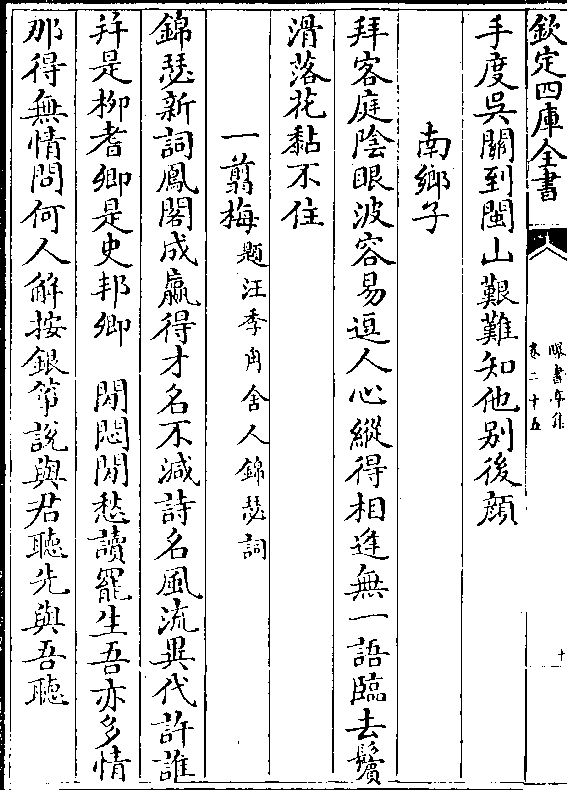 欽定四庫全書
曝書亭集
卷二十五
十
手度吳關到閩山艱難知他别後顔
南鄉子
拜客庭陰眼波容易逗人心縱得相逢無一語臨去鬢
滑落花黏不住
一翦梅 題汪季甪舍人錦瑟詞
錦瑟新詞鳳閣成贏得才名不減詩名風流異代許誰
并是柳耆卿是史邦卿　閒悶閒愁讀罷生吾亦多情
那得無情問何人解按銀箏說與君聽先與吾聽